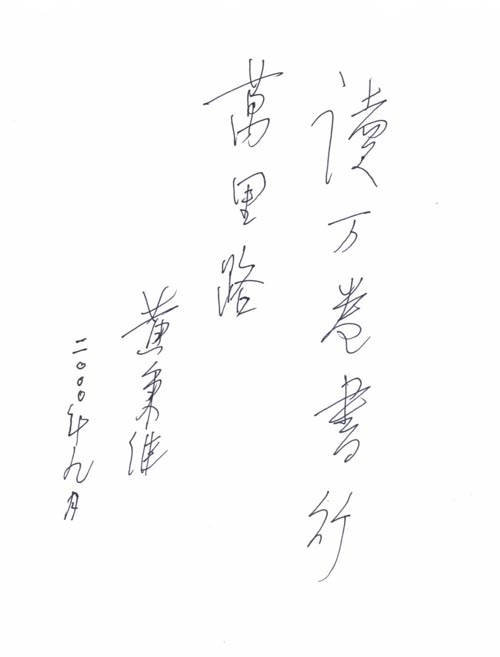 读万卷书行
萬里路
黄秉维
二〇〇〇年九月